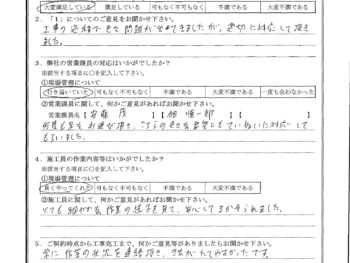 大変満足している 満足している 可もなく不可もなく 不満である 大変不満である
2. 「1」についてのご意見をお聞かせ下さい。
工事の過程で色々問題が出てきましたが、適切に対応して頂き
ました。
3. 弊社の営業課員の対応はいかがでしたか?
※該当する項目に○を記入して下さい。
①現場管理について
行き届いていた 可もなく不可もなく 不満である 大変不満である 一度も合わなかった
②営業課員に関して、何かご意見があればお聞かせ下さい。
営業課員名【 安藤 茂 】【 畑 順一郎 】【 】
何度も足をお運び頂き、こちらの色々な要望にもていねいに対応して
もらいました。
4. 施工員の作業内容等はいかがでしたか?
※該当する項目に○を記入して下さい。
①現場管理について
良くやってくれた 可もなく不可もなく 不満である 大変不満である
②施工員に関して、何かご意見があればお聞かせ下さい。
とても細かな作業の様子を見て、安心してまかせられました。
5. ご契約時点から工事完工まで、何かご意見等がありましたらお聞かせ下さい。
常に作業の状況を連絡頂き、